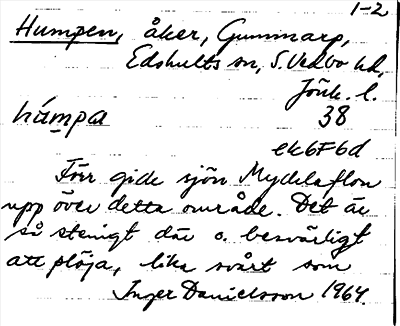 1-2
Humpen, åker, Gummarp,
Edshults sn, S. Vedbo hd,
Jönk. l.
38
húmpa
ek6F6d
Förr gick sjön Mycklaflon
upp över detta område. Det är
så stenigt där o. besvärligt
att plöja, lika svårt som
Inger Danielsson 1964.